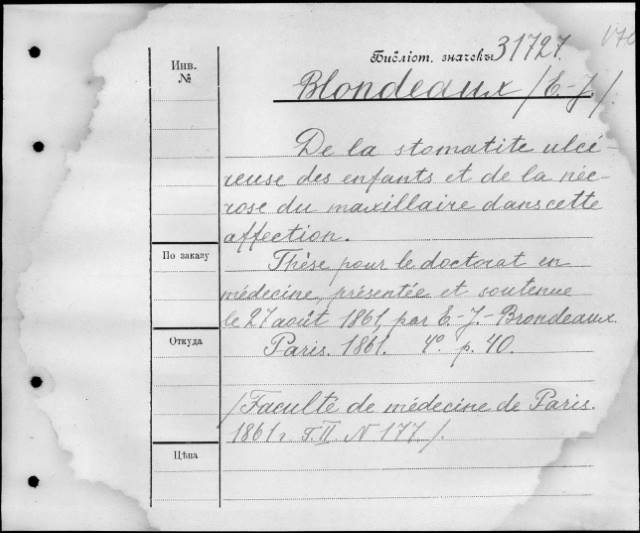 Библіот. значекъ 31727.
Инв.
№
Blondeaux /E.-J./.
De la stomatite ulcé-
reuse des enfants et de la néc-
rose du maxillaire dans cette
affection.
По заказу
Thèse pour le doctorat en
médecine, présentée et soutenue
le 27 août 1861, par E.-J.-Brondeaux.
Откуда
Paris. 1861. 4º. p. 40.
/Faculté de médecine de Paris.
1861 г. T. II N 177/.
Цѣна